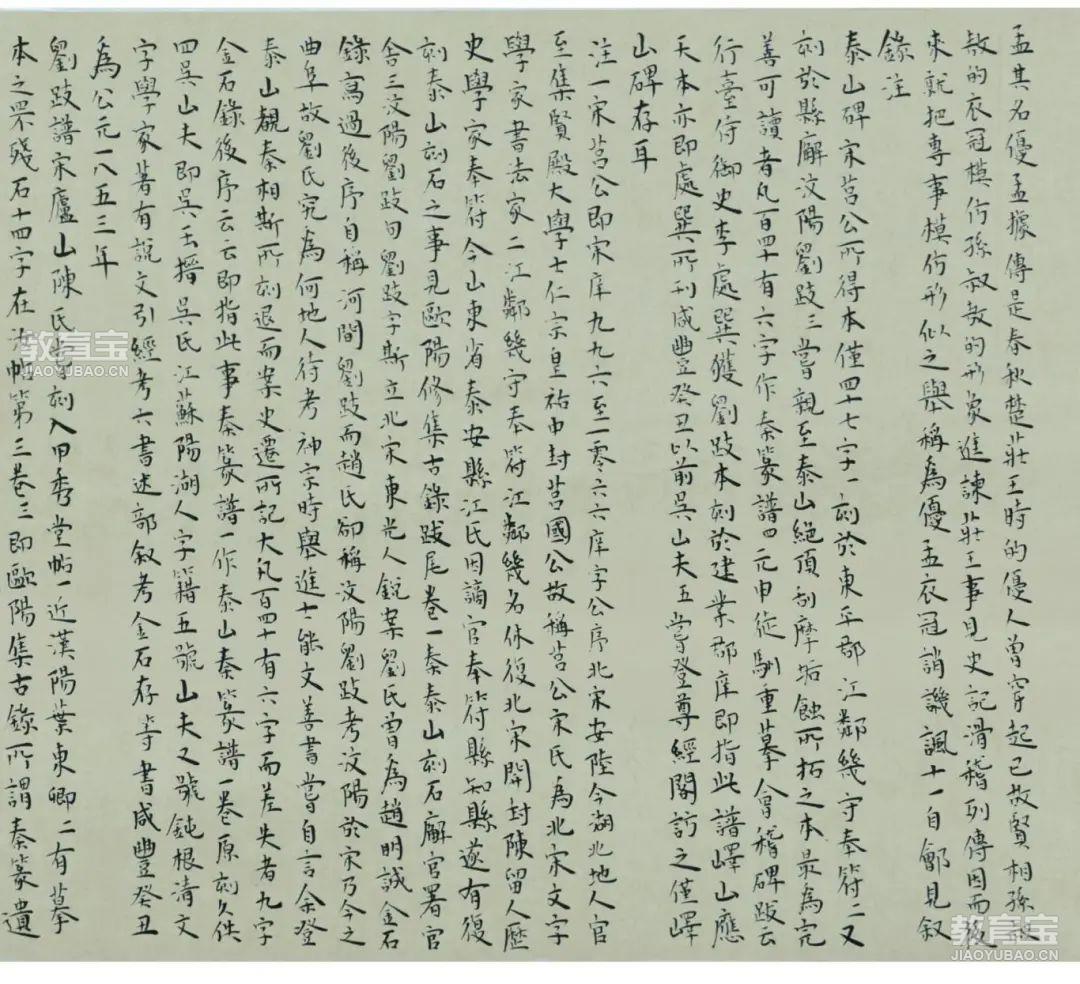 孟其名優孟據傳是春秋楚莊王時的優人曾穿起已故賢相孫叔
敖的衣冠模仿孫叔敖的形象進諫莊王事見史記滑稽列傳因而後
來就把專事模仿形似之舉稱為優孟衣冠誚譏諷十一自鄶見叙
錄注
泰山碑宋莒公所得本僅四十七字一刻於東平郡江鄰幾守奉符二又
刻於縣廨汶陽劉跂三嘗親至泰山絕頂刮摩垢蝕所拓之本最為完
善可讀者凡百四十有六字作秦篆譜四元申屠駉重摹會稽碑跋云
行臺侍御史李處巽獲劉跂本刻於建業郡庠即指此譜嶧山應
天本亦即處巽所刊咸豐癸丑以前吳山夫五嘗登尊經閣訪之僅嶧
山碑存耳
注一宋莒公即宋庠九九六至一零六六庠字公序北宋安陸今湖北地人官
至集賢殿大學士仁宗皇祐中封莒國公故稱莒公宋氏為北宋文字
學家書法家二江鄰幾守奉符江鄰幾名休復北宋開封陳留人歷
史學家奉符今山東省泰安縣江氏因謫官奉符縣知縣遂有復
刻泰山刻石之事見歐陽修集古錄跋尾卷一秦泰山刻石廨官署官
舍三汶陽劉跂句劉跂字斯立北宋東光人銳案劉氏曾為趙明誠金石
錄寫過後序自稱河間劉跂而趙氏卻稱汶陽劉跂考汶陽於宋乃今之
曲阜故劉氏究為何地人待考神宗時舉進士能文善書嘗自言余登
泰山覩秦相斯所刻退而案史遷所記大凡百四十有六字而差失者九字
金石錄後序云云即指此事秦篆譜一作泰山秦篆譜一卷原刻久佚
四吳山夫即吳玉搢吳氏江蘇陽湖人字籍五號山夫又號鈍根清文
字學家著有說文引經考六書述部叙考金石存等書咸豐癸丑
為公元一八五三年
劉跂譜宋廬山陳氏嘗刻入甲秀堂帖一近漢陽葉東卿二有摹
本之罘殘石十四字在汝帖第三卷三即歐陽集古錄所謂秦篆遺
教育宝
JIAOYUBAO.CN
教育宝
JIAOYUBAO.CN